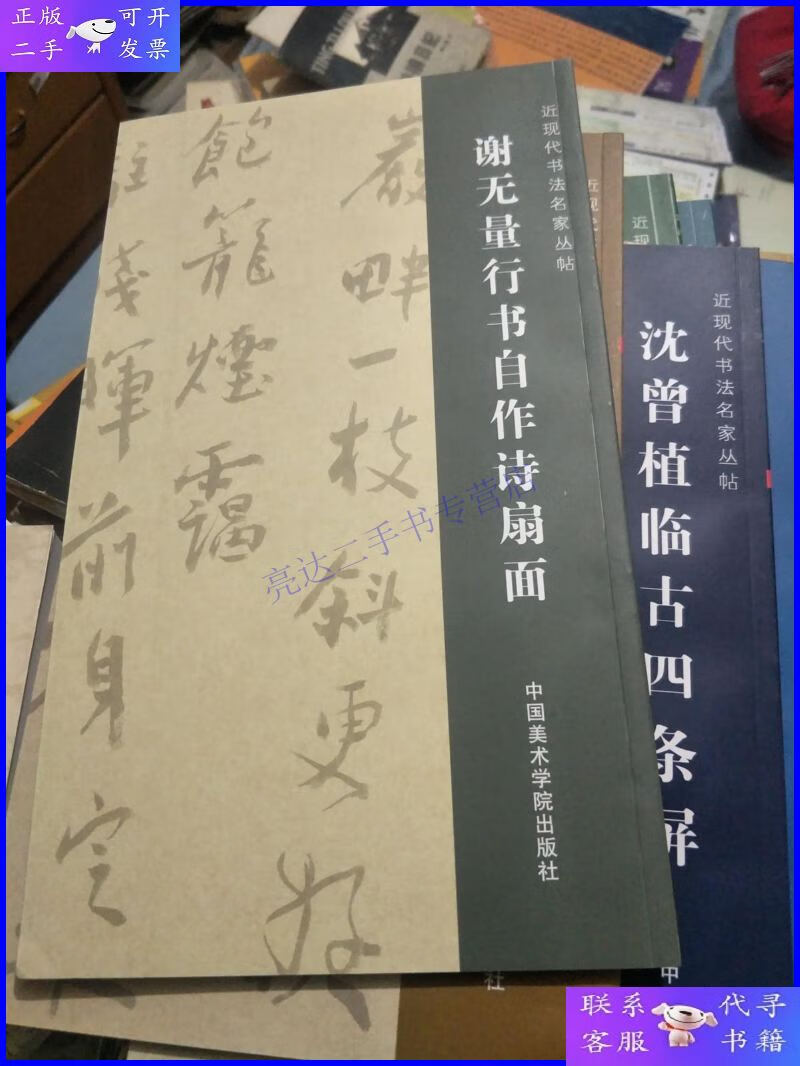 正版 可开
二手 发票
近现代书法名家丛帖
谢无量行书自作诗扇面
中国美术学院出版社
巖畔一枝斜更好
飽籠煙靄
殘暉前身定
近现代书法名家丛帖
沈曾植临古四条屏
中
近现
近现
社
亮达二手书专营店
联系 代寻
客服 书籍